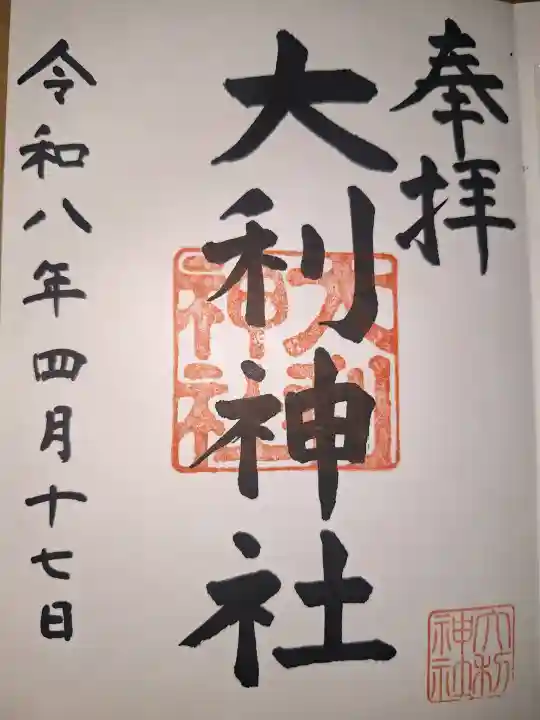 奉拝
大利神社
令和八年四月十七日
大利
神社
大利
神社